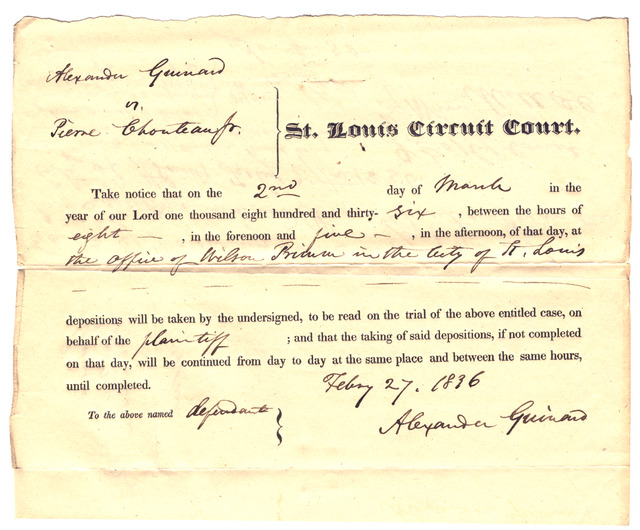 Alexander Guinard
vs.
Pierre Chouteau Jr.
St. Louis Circuit Court.
Take notice that on the 2nd day of March in the
year of our Lord one thousand eight hundred and thirty- six , between the hours of
eight — , in the forenoon and five — , in the afternoon, of that day, at
the office of Wilson Primm in the City of St. Louis
depositions will be taken by the undersigned, to be read on the trial of the above entitled case, on
behalf of the plaintiff ; and that the taking of said depositions, if not completed
on that day, will be continued from day to day at the same place and between the same hours,
until completed. Feby 27. 1836
To the above named defendant
Alexander Guinard